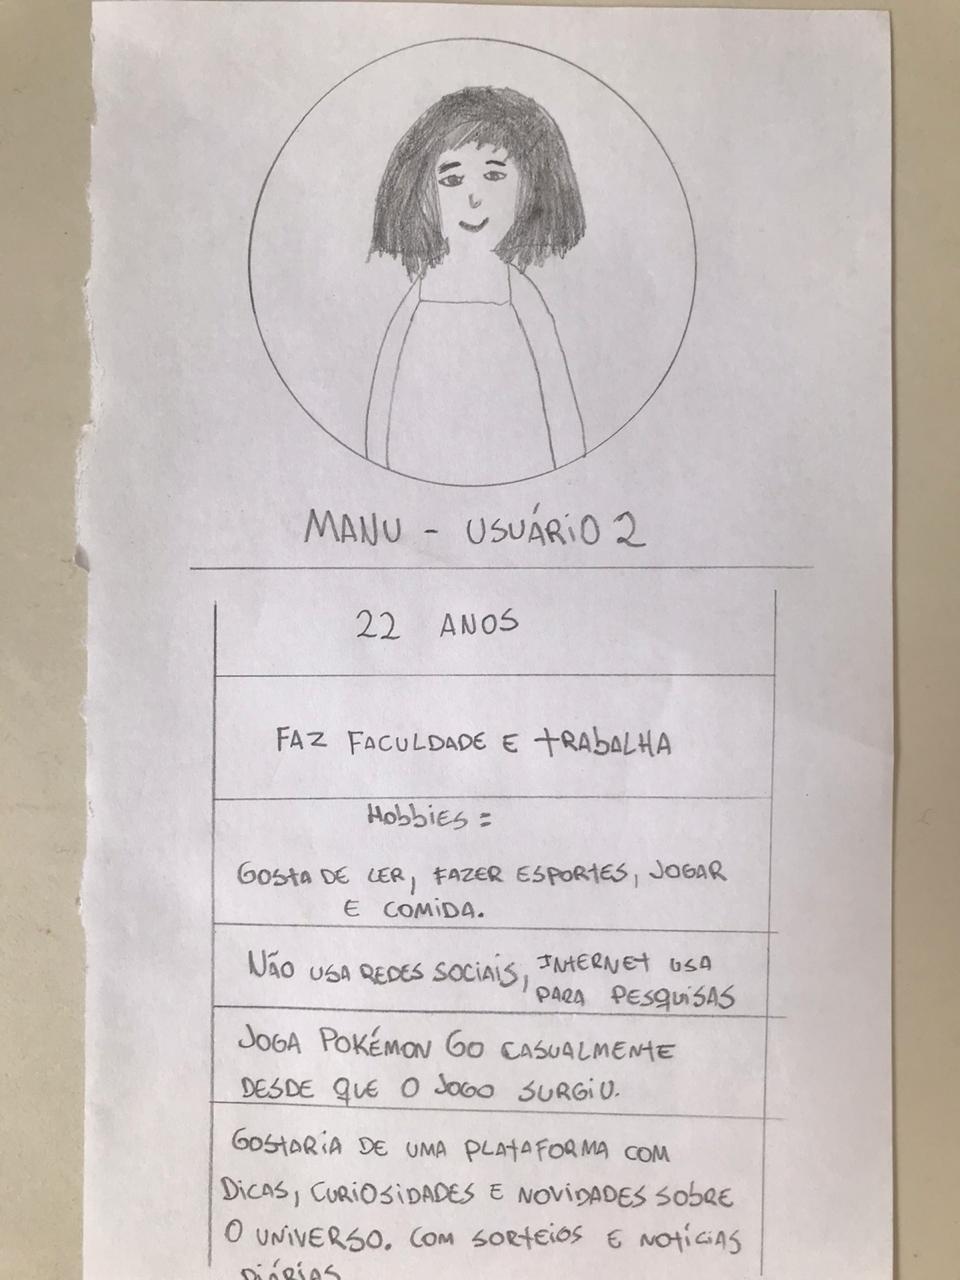 MANU - USUÁRIO 2
22 ANOS
FAZ FACULDADE E TRABALHA
Hobbies =
GOSTA DE LER, FAZER ESPORTES, JOGAR
E COMIDA.
NÃO USA REDES SOCIAIS, INTERNET USA
PARA PESQUISAS
JOGA POKÉMON GO CASUALMENTE
DESDE QUE O JOGO SURGIU.
GOSTARIA DE UMA PLATAFORMA COM
DICAS, CURIOSIDADES E NOVIDADES SOBRE
O UNIVERSO. COM SORTEIOS E NOTÍCIAS
DIÁRIAS